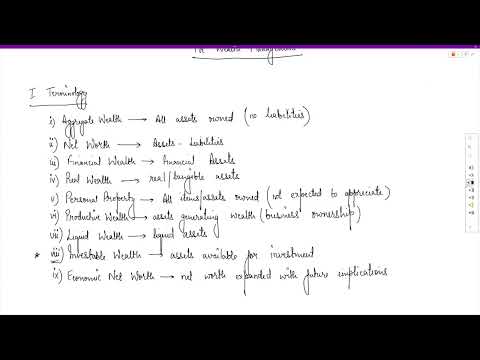 I Terminology
i) Aggregate Wealth → All assets owned (no liabilities)
ii) Net Worth → Assets - Liabilities
iii) Financial Wealth → Financial Assets
iv) Real Wealth → real/tangible assets
v) Personal Property → All items/assets owned (not expected to appreciate)
vi) Productive Wealth → assets generating wealth (business ownership)
vii) Liquid Wealth → liquid assets
* viii) Investable Wealth → assets available for investment
ix) Economic Net Worth → net worth expanded with future implications